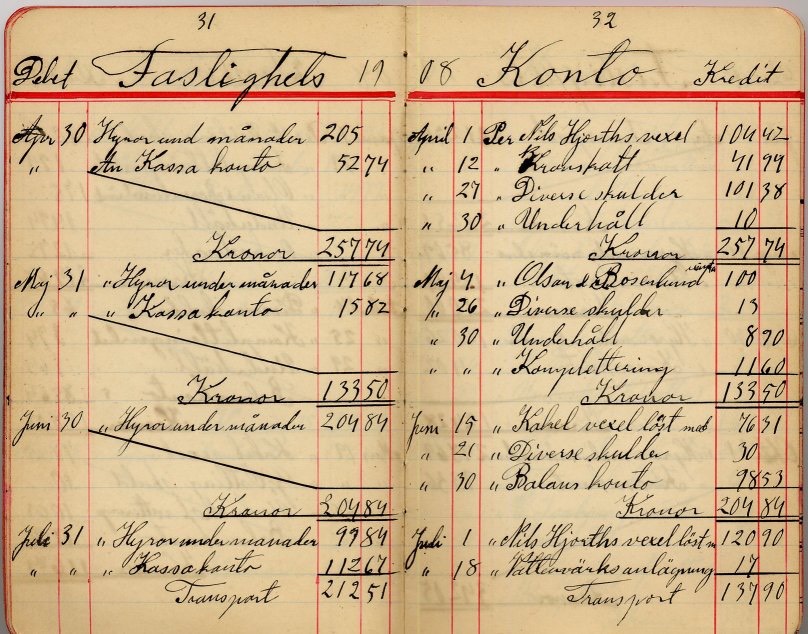 31
Debet Fastighets 19
Apr 30 Hyror und månader 205
„ An Kassa konto 52 74
Kronor 257 74
Maj 31 „ Hyror under månader 117 68
„ „ „ Kassa konto 15 82
Kronor 133 50
Juni 30 „ Hyror under månader 204 84
Kronor 204 84
Juli 31 „ Hyror under månader 99 84
„ „ „ Kassa konto 112 67
Transport 212 51
32
08 Konto Kredit
April 1 Per Nils Hjorths vexel 104 42
„ 12 „ Kronskatt 41 94
„ 27 „ Diverse skulder 101 38
„ 30 „ Underhåll 10
Kronor 257 74
Maj 4 „ Olson & Rosenlund 100
„ 26 „ Diverse skulder 13
„ 30 „ Underhåll 8 90
„ „ „ Komplettering 11 60
Kronor 133 50
Juni 15 „ Kakel vexel löst med 76 31
„ 21 „ Diverse skulder 30
„ 30 „ Balans konto 98 53
Kronor 204 84
Juli 1 „ Nils Hjorths vexel löst m 120 90
„ 18 „ Vattenvärksanlägning 17
Transport 137 90